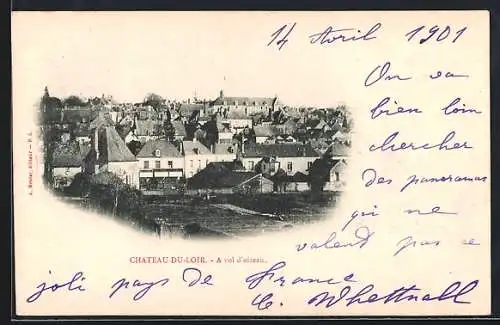 14 Avril 1901
On va
bien loin
chercher
des panoramas
qui ne
valent pas ce
joli pays de France
CHATEAU-DU-LOIR. - A vol d'oiseau.